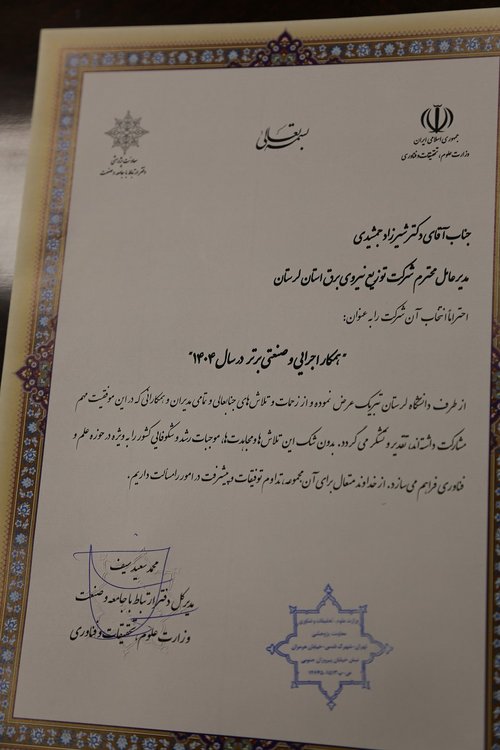 بسمه تعالی
جمهوری اسلامی ایران
وزارت علوم، تحقیقات و فناوری
معاونت پژوهشی
دفتر ارتباط با جامعه و صنعت
جناب آقای دکتر شیرزاد جمشیدی
مدیرعامل محترم شرکت توزیع نیروی برق استان لرستان
احتراماً انتخاب آن شرکت را به عنوان:
"همکار اجرایی و صنعتی برتر در سال ۱۴۰۴"
از طرف دانشگاه لرستان تبریک عرض نموده و از زحمات و تلاش های جنابعالی و تمامی مدیران و همکارانی که در این موفقیت مهم
مشارکت داشته‌اند، تقدیر و تشکر می گردد. بدون شک این تلاش ها و مجاهدت ها، موجبات رشد و شکوفایی کشور را به ویژه در حوزه علم و
فناوری فراهم می سازد. از خداوند متعال برای آن مجموعه، تداوم توفیقات و پیشرفت در امور را مسالت داریم.
محمد سعید سیف
مدیرکل دفتر ارتباط با جامعه و صنعت
وزارت علوم، تحقیقات و فناوری
وزارت علوم، تحقیقات و فناوری
معاونت پژوهشی
تهران-شهرک قدس-خیابان هرمزان
نبش خیابان پیروزان جنوبی